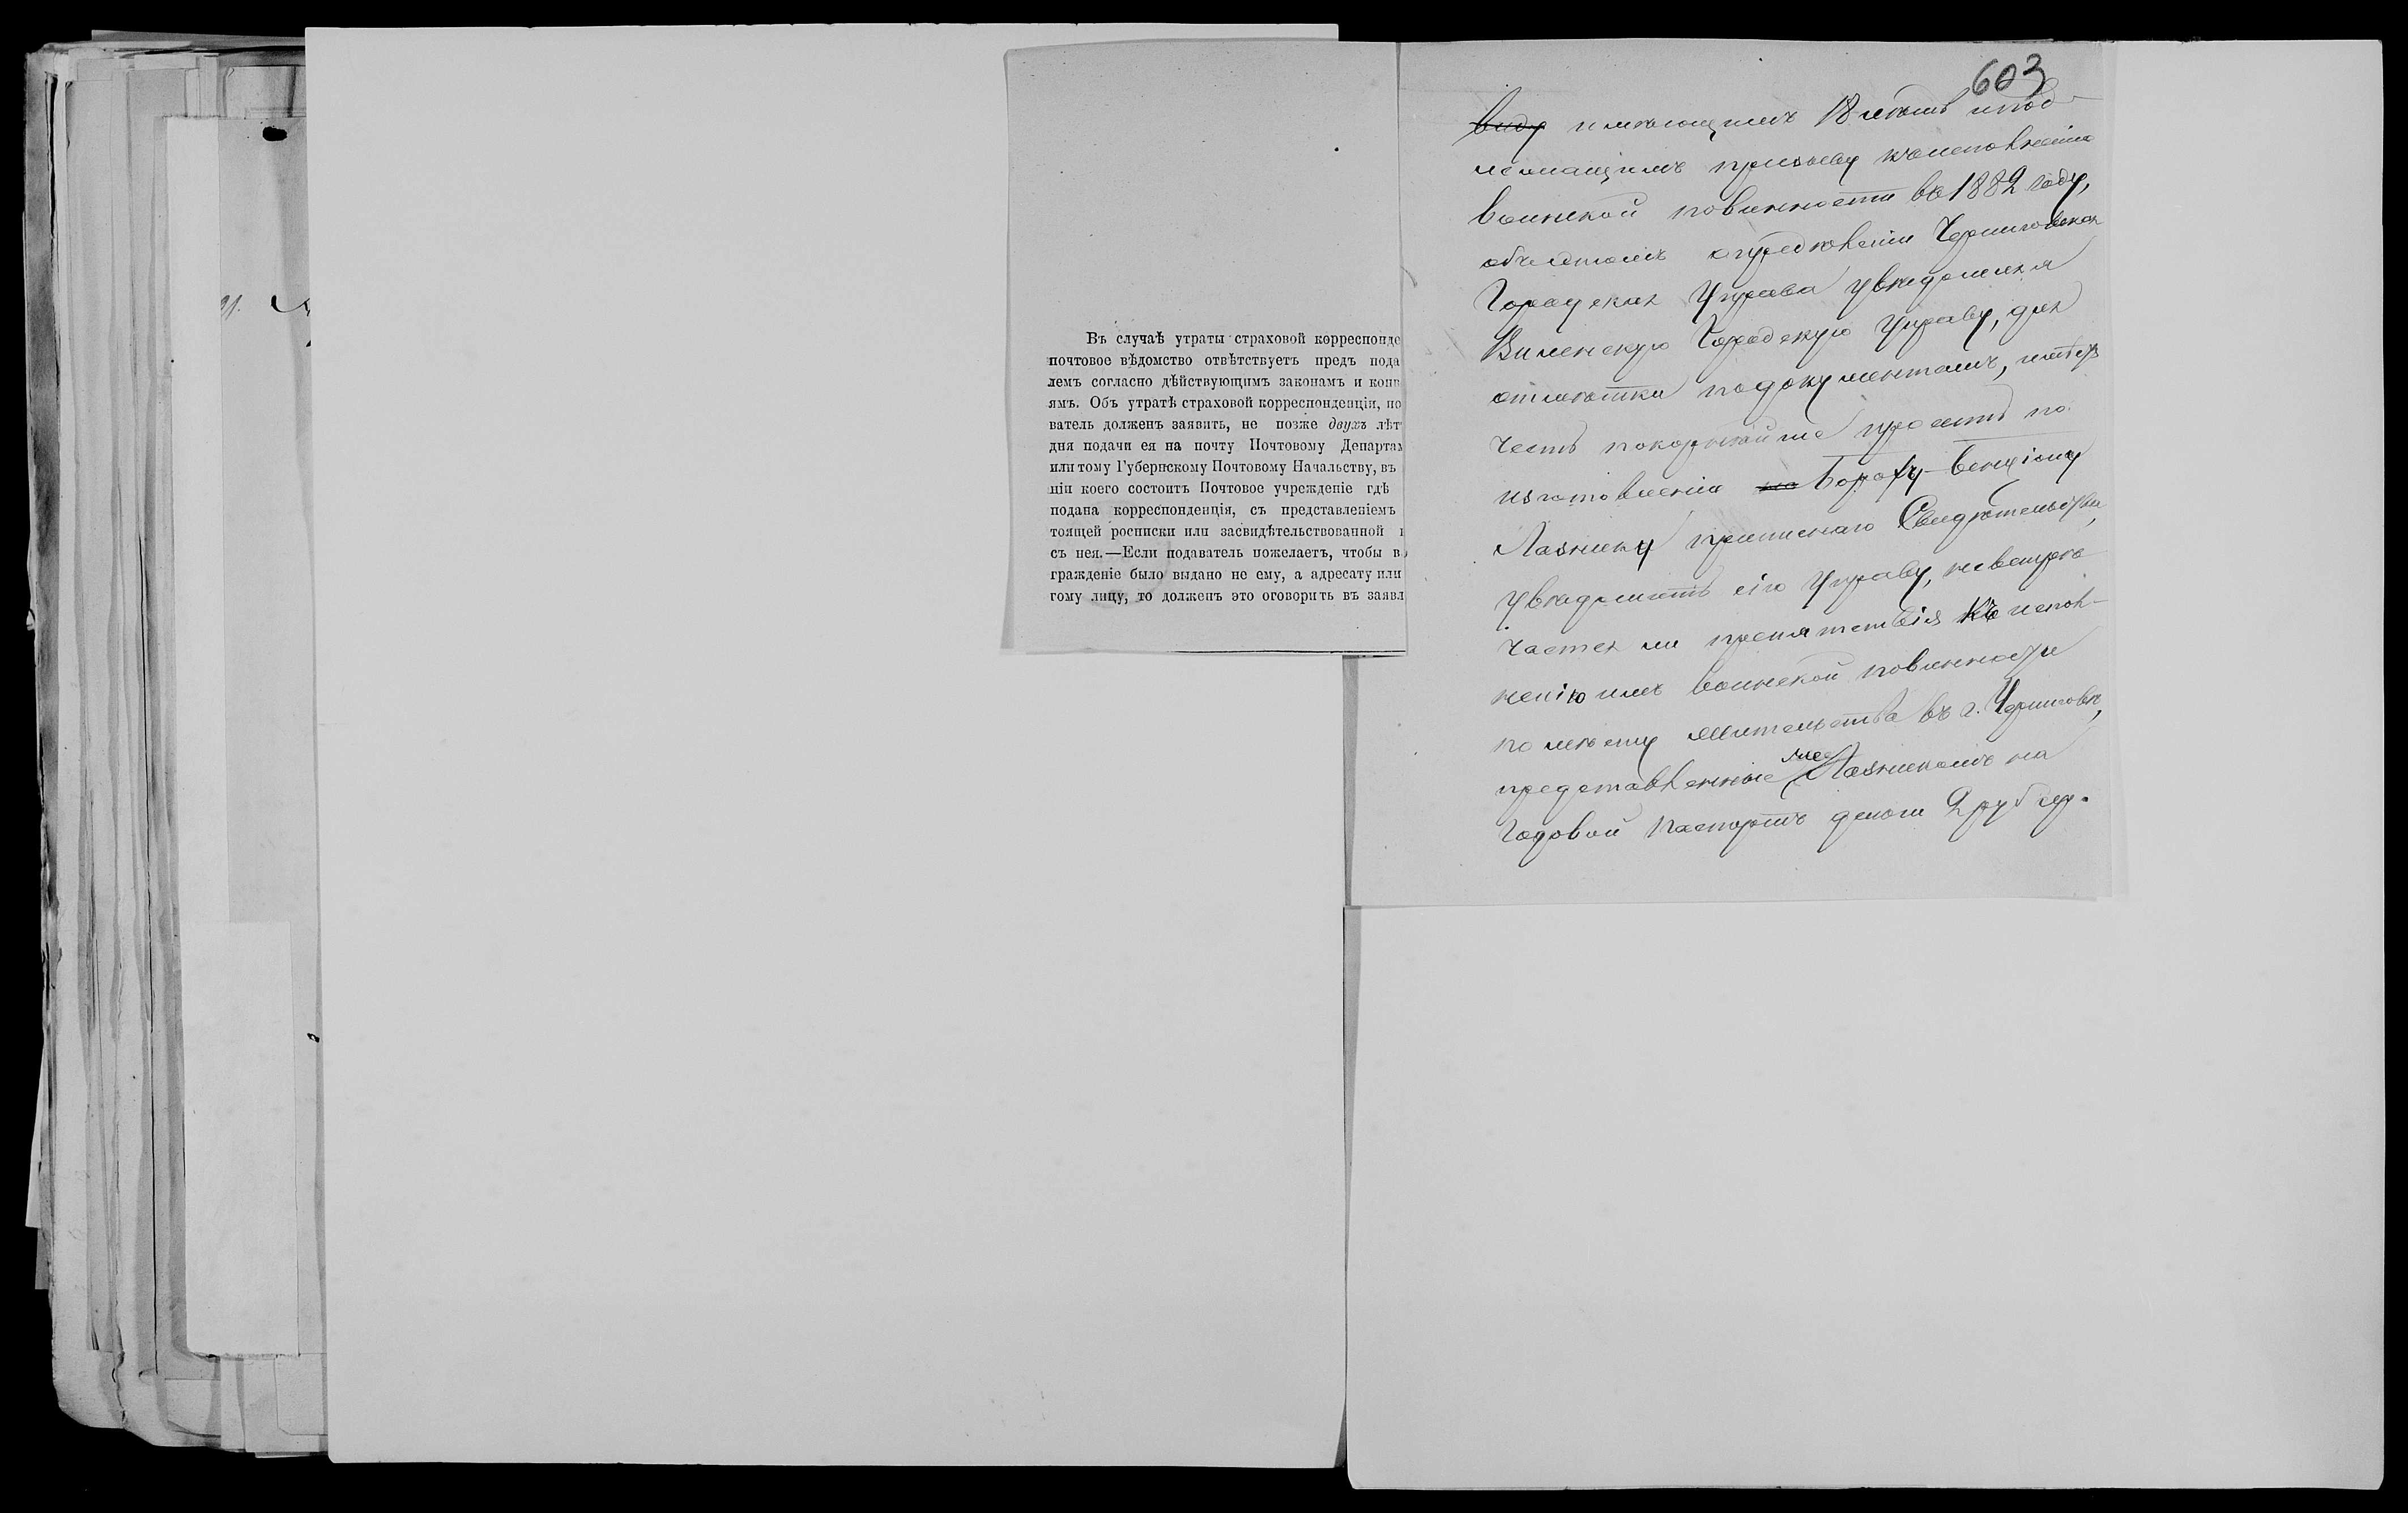 Въ случаѣ утраты страховой корреспонде
почтовое вѣдомство отвѣтствуетъ предъ пода
лемъ согласно дѣйствующимъ законамъ и конв
ямъ. Объ утратѣ страховой корреспонденціи, по
ватель долженъ заявить, не позже двухъ лѣт
дня подачи ея на почту Почтовому Департам
или тому Губернскому Почтовому Начальству, въ
ніи коего состоитъ Почтовое учрежденіе гдѣ
подана корреспонденція, съ представленіемъ
тоящей росписки или засвидѣтельствованной
съ нея.—Если подаватель пожелаетъ, чтобы в
гражденіе было выдано не ему, а адресату или
гому лицу, то долженъ это оговорить въ заявл
603
виду имѣющимъ 18 лѣтъ и под-
лежащимъ призыву к исполненію
воинской повинности въ 1882 году,
опредѣленіи Черниговская
Городская Управа увѣдомляя
Виленскую Городскую Управу, для
отмѣтки по документамъ, имѣетъ
честь покорнѣйше просить по
изготовленіи на Боруху-Бенціону
Лазнику приписнаго Свидѣтельства,
увѣдомить сію Управу, не встрѣ-
чается ли препятствія къ испол-
ненію имъ воинской повинности
по мѣсту жительства въ г. Черниговѣ,
представленные Лазникомъ на
годовой паспортъ деньги 2 руб. сер.